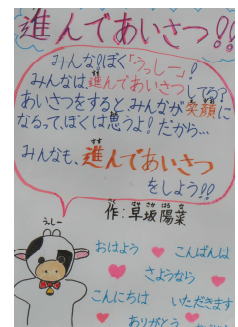 進んであいさつ!!
みんな!ぼく「うっしー」!
みんなは、進んであいさつしてる?
あいさつをすると、みんなが笑顔に
なるって、ぼくは思うよ!だから…
みんなも、進んであいさつ
をしよう!!
作:早坂陽菜
うっしー
おはよう
こんばんは
さようなら
こんにちは
いただきます
ありがとう